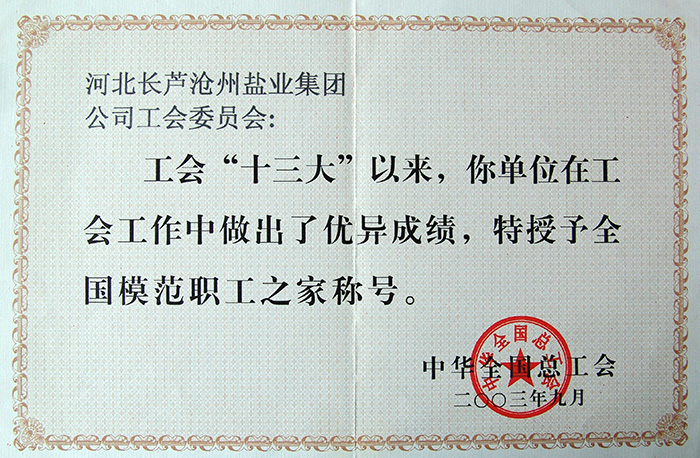 河北长芦沧州盐业集团
公司工会委员会：
工会“十三大”以来，你单位在工
会工作中做出了优异成绩，特授予全
国模范职工之家称号。
中华全国总工会
中华全国总工会
二〇〇三年九月